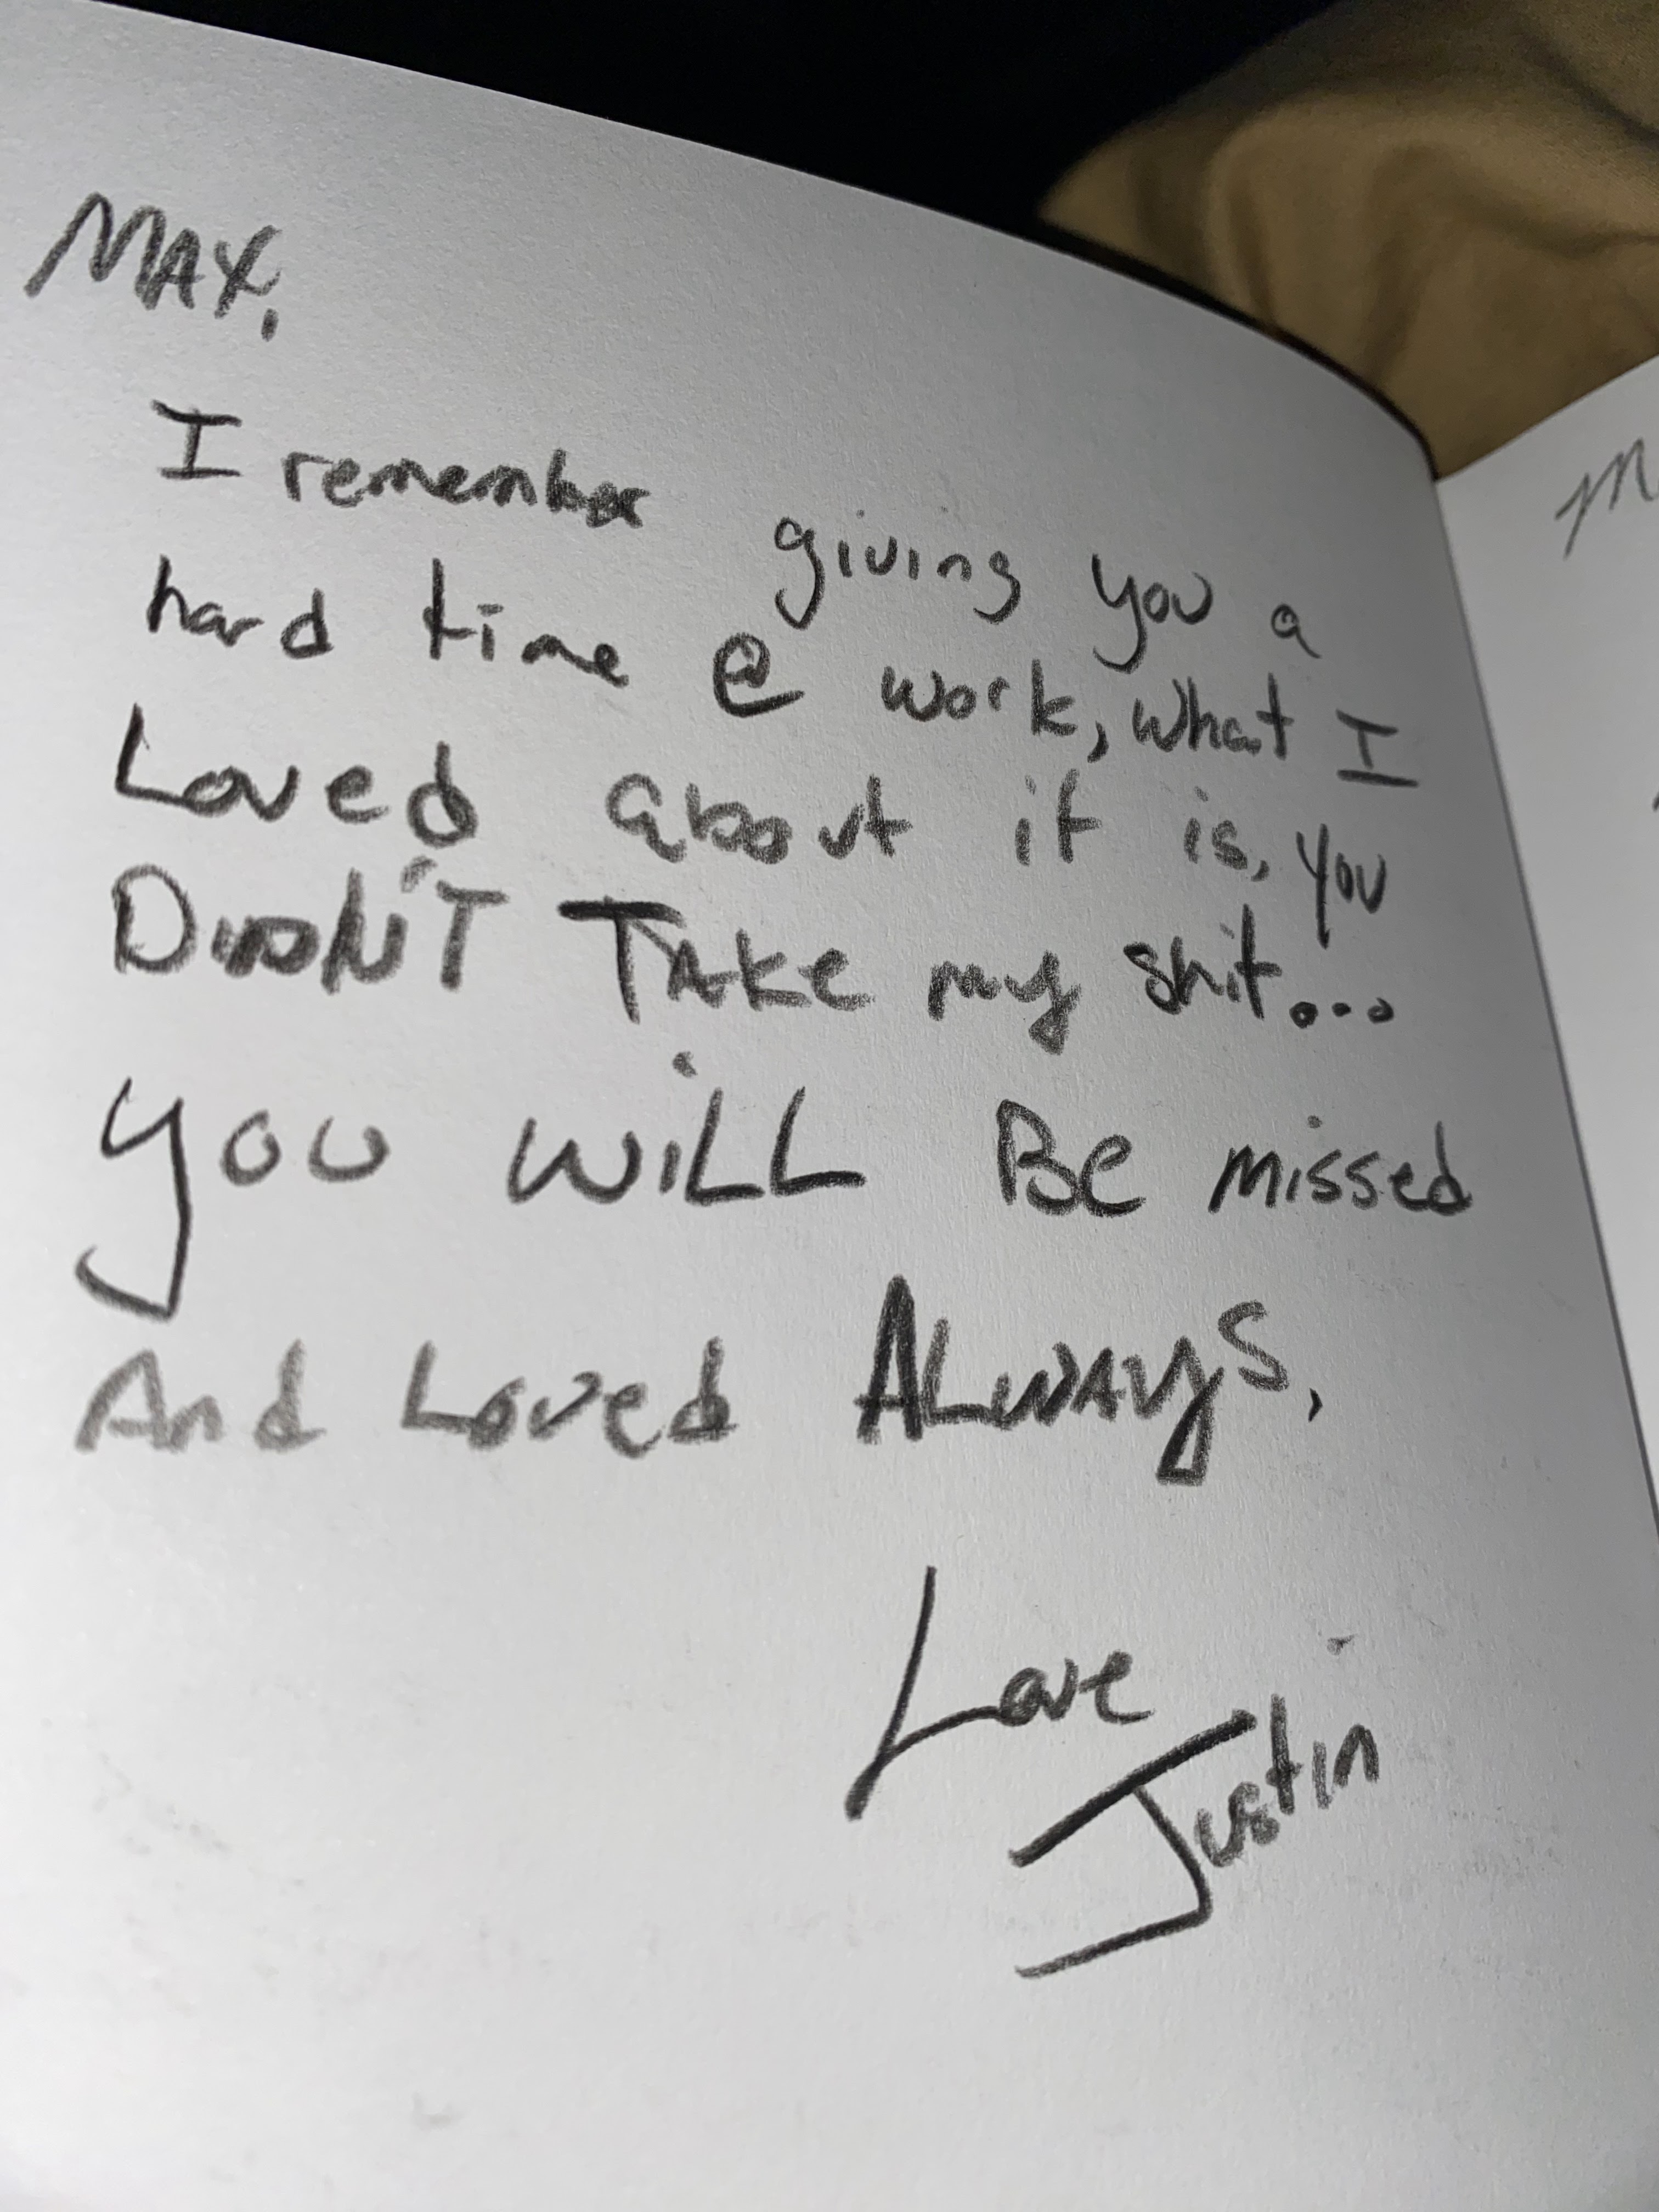 MAX,
I remember giving you a
hard time @ work, what I
Loved about it is, you
DIDN'T TAKe my shit...
you WiLL Be missed
And Loved ALWAYS,
Love
Justin
M